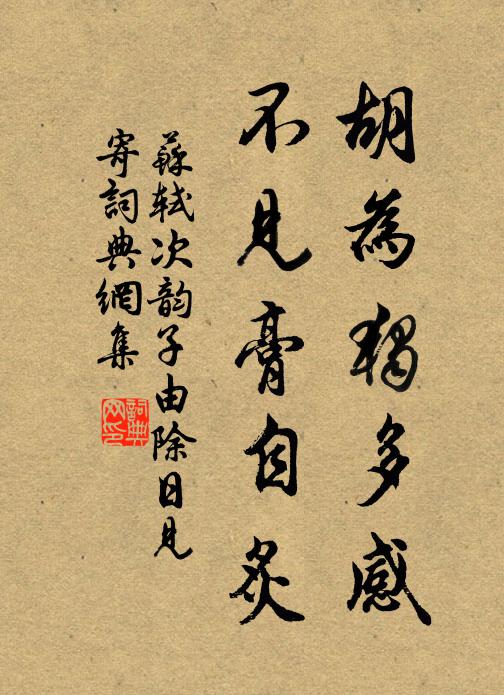 胡為獨多感
不見膏自炙
蘇軾次韵子由除日見
寄詞典網集
詞典
网印